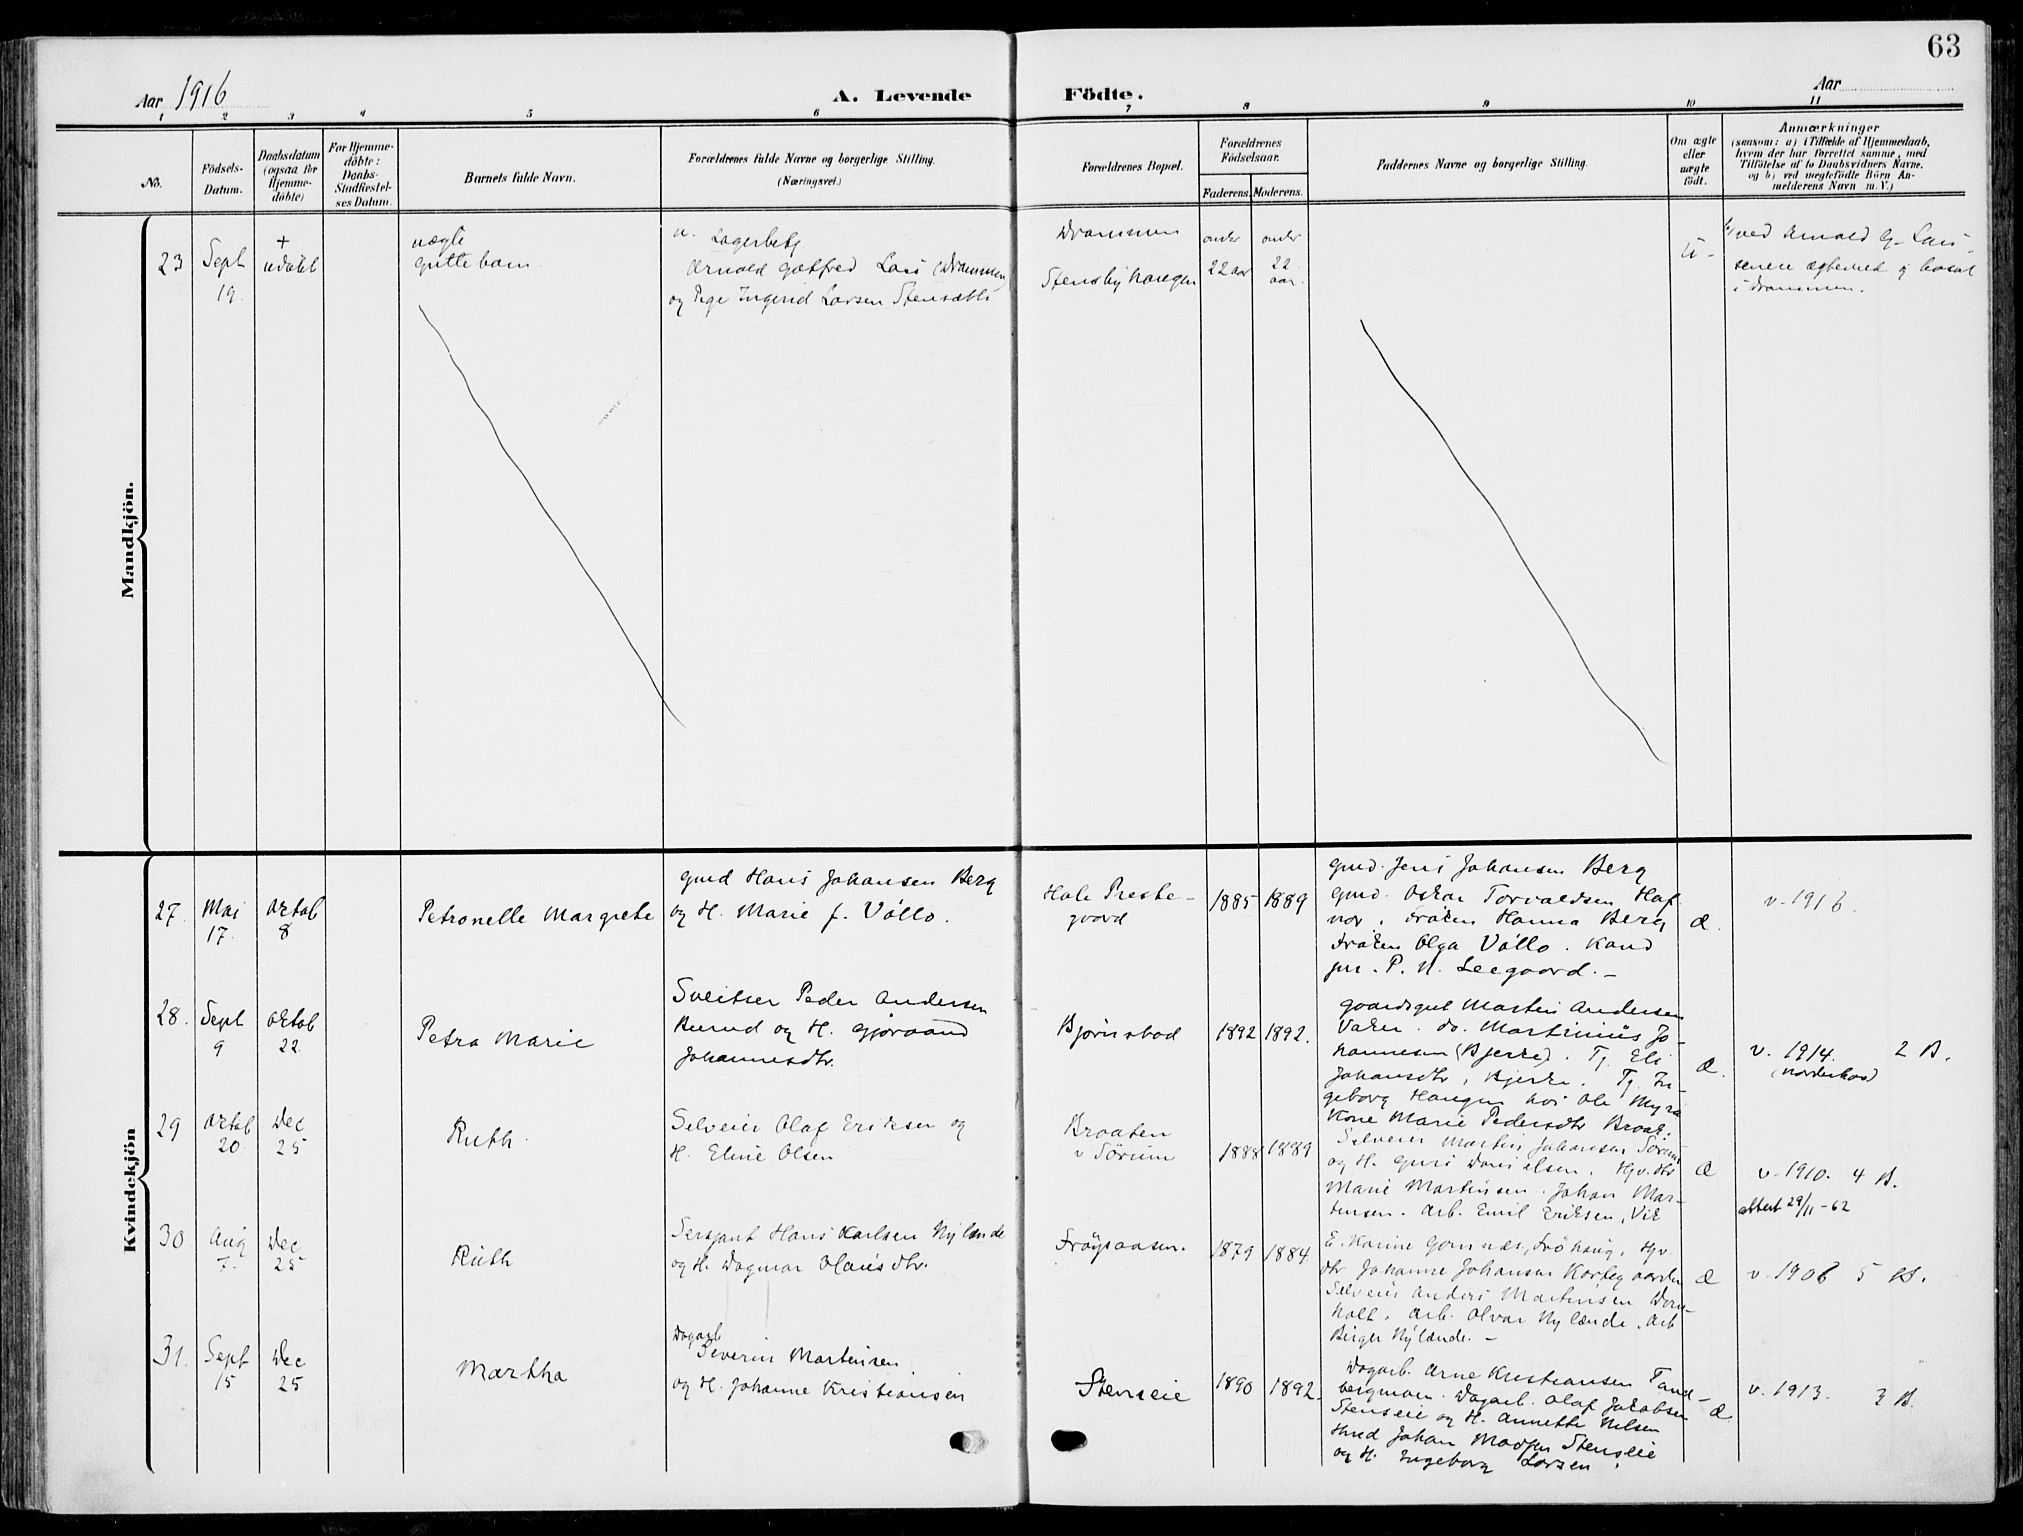 63
Aar 1916
A. Levende Födte.
Aar
1 2 3 4 5 6 7 8 9 10 11
No.
Födsels-
Datum.
Daabsdatum
(ogsaa for
Hjemme-
döbte)
For Hjemme-
döbte:
Daabs-
Stadfæstel-
ses Datum.
Barnets fulde Navn.
Forældrenes fulde Navne og borgerlige Stilling.
(Næringsvei.)
Forældrenes Bopæl.
Forældrenes
Födselsaar.
Faderens.
Moderens.
Faddernes Navne og borgerlige Stilling.
Om ægte
eller
uægte
födt.
Anmærkninger
(saasom: a) i Tilfælde af Hjemmedaab,
hvem der har forrettet samme, med
Tilföielse af to Daabsvidners Navne.
og b) ved uægtefödte Börn An-
melderens Navn m. V.)
Mandkjön.
23
Sept
19.
+
udöbt
uægte
guttebarn
Lagerbetj
Arnold Gotfred Lars (Drammen)
og Pige Ingrid Larsen
Drammen
Stensbyhaugen
under
22 aar
under
22
aar.
U-
ved Arnold G. Lars
senere ægteviet og bosat
i Drammen.
Kvindekjön
27.
Mai
17.
Oktob
8
Petronelle Margrete
Gmd Hans Johansen Berg
og H. Marie f. Völlo.
Hole Preste-
gaard
1885
1889
Gmd. Jens Johansen Berg
Gmd. Oskar Torvaldsen Haf
nor. Fröken Hanna Berg
Fröken Olga Völlo. Kand
jur. P. N. Leegaard. -
Æ.
v. 1916.
28.
Sept
9
Oktob
22.
Petra Marie
Sveitser Peder Andersen
og H. Gjöraand
Johannesdtr.
Bjørnstad
1892
1892.
Gaardsgut Martin Andersen
Vaker. do. Martinius Jo-
hannesen (Bjerke). Tj. Eli
Johansdtr, Bjerke. Tj. In-
geborg Haugen hos Ole Myra
Kone Marie Pedersdtr Braat.
Æ.
v. 1914. 2 B.
(Norderhov)
29
Oktob
20.
Dec
25
Ruth.
Selveier Olaf Eriksen og
H. Eline Olsen
Braaten
v Sörum
1888
1889
Selveier Martin Johansen Sörum
og H. Guri Danielsen. Hv. dtr
Marie Martinsen. Johan Mar-
tinsen. Arb. Emil Eriksen, Vik
Æ
v. 1910. 4 B.
attest 29/11-62
30
Aug
7.
Dec
25
Ruth
Sersjant Hans Karlsen Nylænde
og H. Dagmar Olausdtr.
Fröysaasen.
1879
1884
E. Karine Gomnæs, Fröhaug. Hv.
dtr Johanne Johansen
Selveier Anders Martinsen
holt. Arb. Alvar Nylænde. Arb
Birger Nylænde. -
Æ
v. 1906 5 B.
31.
Sept
15
Dec
25
Martha
Dagarb
Severin Martinsen
og H. Johanne Kristiansen
Stenseie
1890
1892.
Dagarb. Arne Kristiansen Tand-
bergmoen. Dagarb. Olaf Jakobsen
Stenseie og H. Annette Nilsen
Hmd Johan Madsen Stenseie
og H. Ingeborg Larsen.
Æ
v. 1913. 3 B.